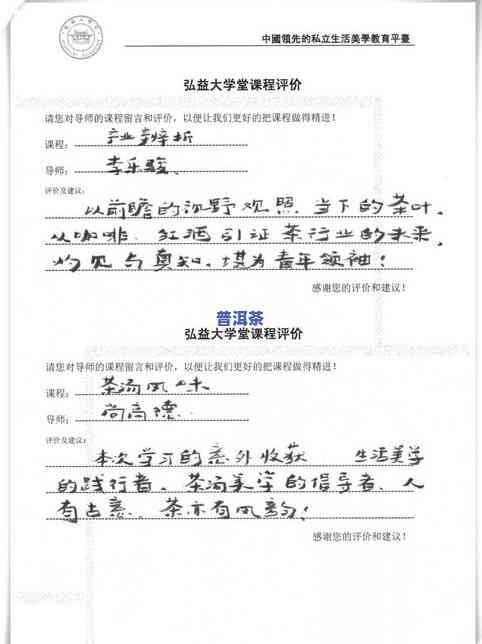 中國領先的私立生活美學教育平臺
弘益大学堂课程评价
请您对导师的课程留言和评价，以便让我们更好的把课程做得精进！
课程：产业辩析
导师：李乐骏
评价及建议：
以前瞻的视野观照当下的茶叶。
从咖啡、红酒引证茶行业的未来，
灼见与真知，堪为青年领袖！
感谢您的评价和建议！
普洱茶
弘益大学堂课程评价
请您对导师的课程留言和评价，以便让我们更好的把课程做得精进！
课程：茶汤风味
导师：尚高德
评价及建议：
本次学习的意外收获 生活美学
的践行者、茶汤美学的倡导者、人
有古意、茶亦有风韵！
感谢您的评价和建议！